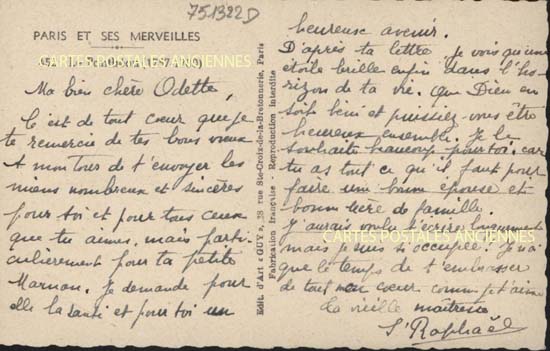 751322D
PARIS ET SES MERVEILLES
CARTES POSTALES ANCIENNES
Ma bien chère Odette,
C'est de tout cœur que je
te remercie de tes bons vœux
A mon Tour de t'envoyer les
miens nombreux et sincères
pour toi et pour tous ceux
que tu aimes, mais parti-
culièrement pour ta petite
Maman. Je demande pour
elle la santé et pour toi un
Edit. d'Art « GUY », 28 rue Ste-Croix-de-la-Bretonnerie, Paris
Fabrication Française - Reproduction Interdite
heureuse avenir.
D'après ta lettre je vois qu'une
étoile brille enfin dans l'ho-
rizon de ta vie. Que Dieu en
soit béni et puissiez-vous être
heureux ensemble. Je le
souhaite beaucoup pour toi, car
tu as tout ce qu'il faut pour
faire une bonne épouse et
bonne Mère de famille.
J'aurais voulu t'écrire longuement
CARTES POSTALES ANCIENNES
mais je suis si occupée. Je n'ai
que le temps de t'embrasser
de tout mon cœur comme je t'aime
La vieille maîtresse
St Raphaël